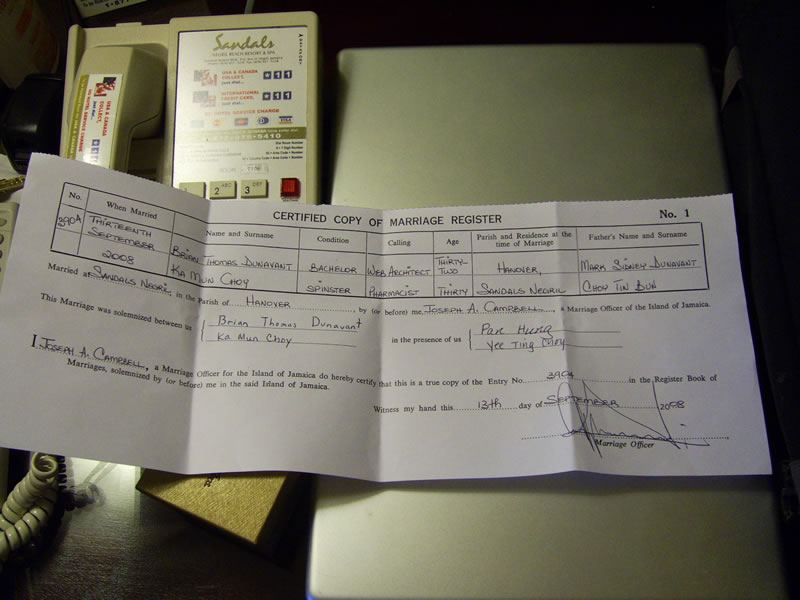 Sandals
NEGRIL BEACH RESORT & SPA
USA & CANADA
COLLECT,
just dial...
*11
INTERNATIONAL
CREDIT CARD,
just dial...
*11
VISA
2 ABC
3 DEF
CERTIFIED COPY OF MARRIAGE REGISTER
No. 1
No.
When Married
Name and Surname
Condition
Calling
Age
Parish and Residence at the time of Marriage
Father's Name and Surname
390A
THIRTEENTH
SEPTEMBER
2008
BRIAN THOMAS DUNAVANT
BACHELOR
WEB ARCHITECT
THIRTY-TWO
HANOVER,
MARK SIDNEY DUNAVANT
KA MUN CHOY
SPINSTER
PHARMACIST
THIRTY
SANDALS NEGRIL
CHOW TIN BUN
Married at SANDALS NEGRIL, in the Parish of HANOVER, by (or before) me JOSEPH A. CAMPBELL, a Marriage Officer of the Island of Jamaica.
This Marriage was solemnized between us
Brian Thomas Dunavant
Ka Mun Choy
in the presence of us
Yee Ting
I, JOSEPH A. CAMPBELL, a Marriage Officer for the Island of Jamaica do hereby certify that this is a true copy of the Entry No. 390A in the Register Book of
Marriages, solemnized by (or before) me in the said Island of Jamaica.
Witness my hand this 13th day of SEPTEMBER 2008
Marriage Officer